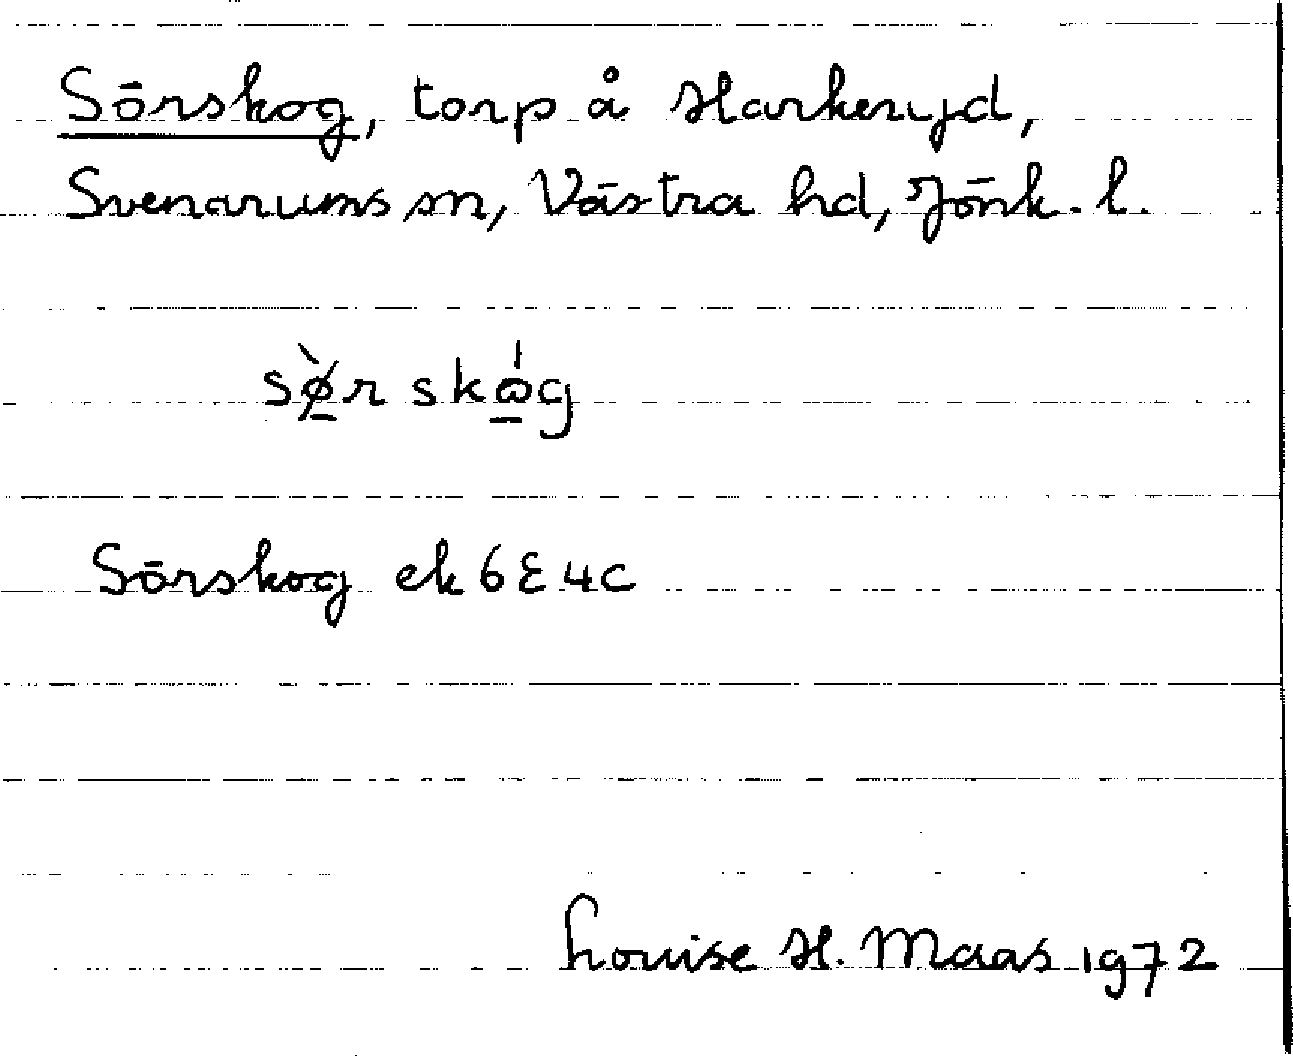 Sörskog, torp å Harkeryd,
Svenarums sn, Västra hd, Jönk. l.
sø̱̀r skώ̱g
Sörskog ek 6E4c
Louise H. Maas 1972